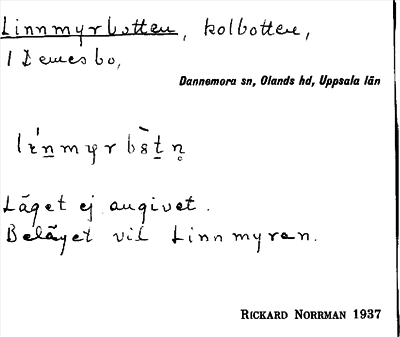 Linnmyrbotten, kolbotten,
i Demesbo,
Dannemora sn, Olands hd, Uppsala län
Läget ej angivet.
Beläget vid Linnmyren.
RICKARD NORRMAN 1937